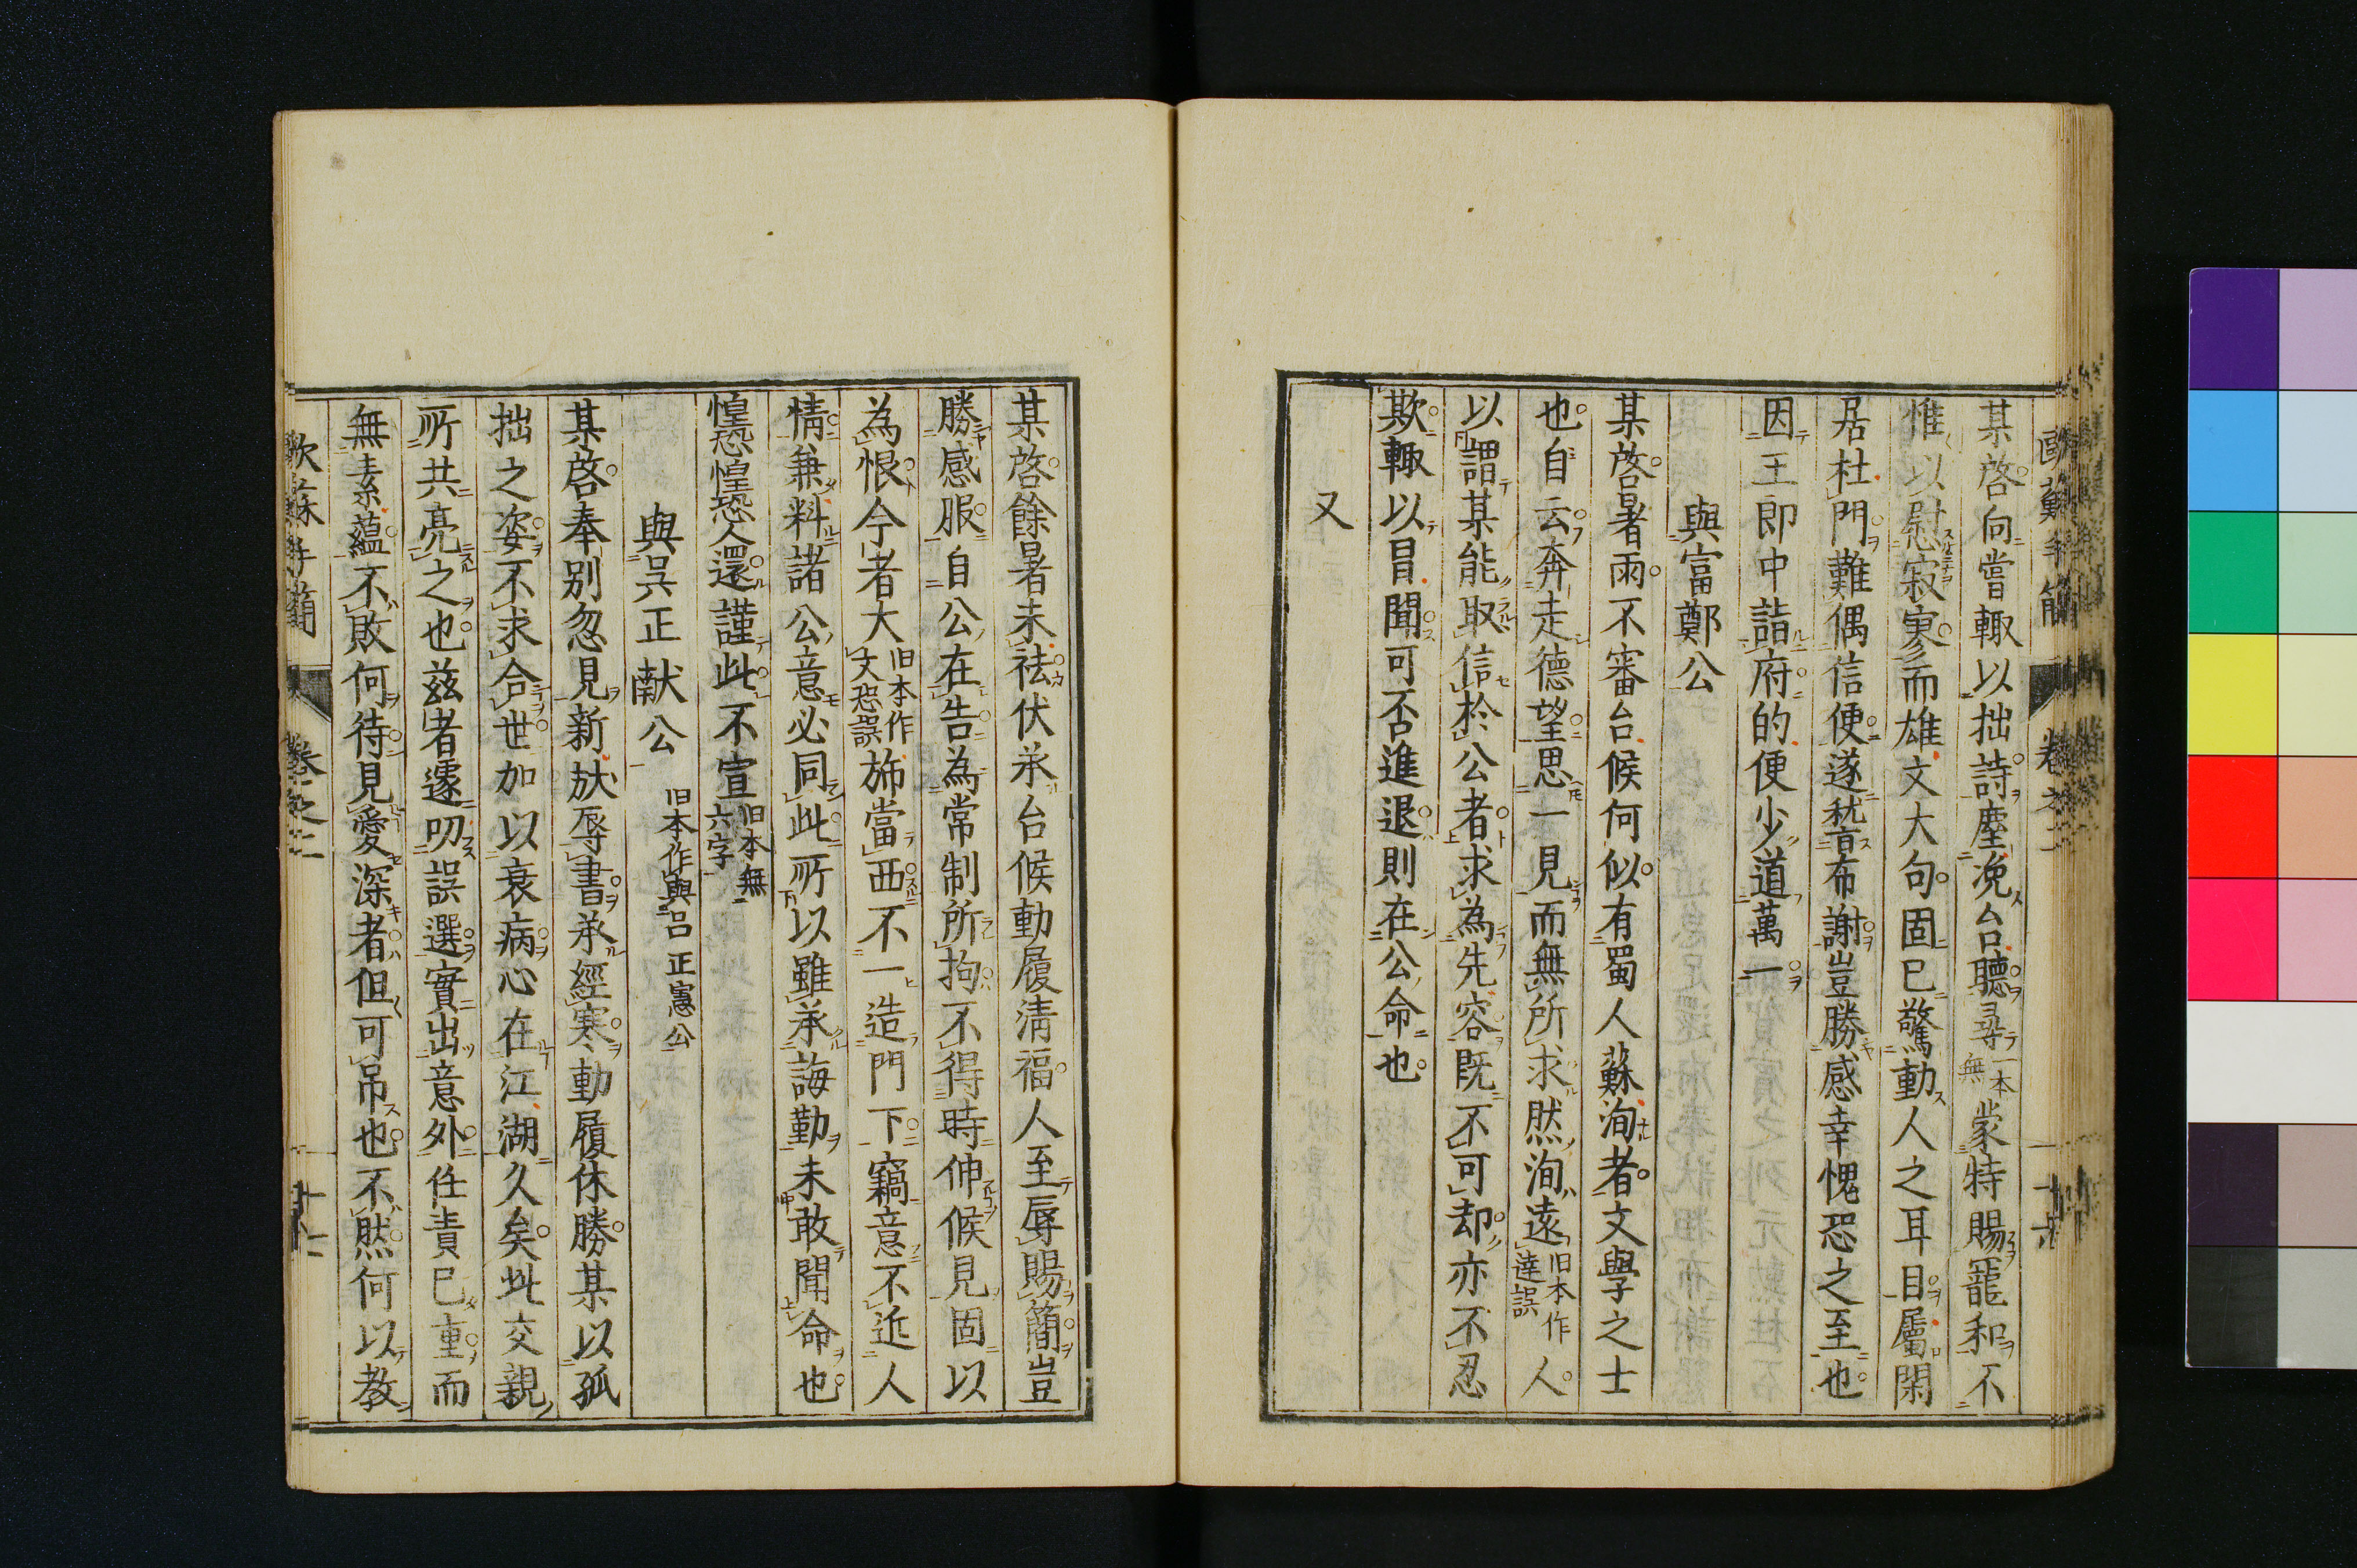 歐蘇手簡 卷之二
某啓向嘗輙以拙詩塵浼台聽尋一本無蒙特賜寵和不
惟以慰寂寞而雄文大句固已驚動人之耳目屬閑
居杜門難偶信便遂愁布謝豈勝感幸愧恐之至也
因王郎中詣府的便少道萬一
與富鄭公
某啓暑雨不審台候何似有蜀人蘇洵者文學之士
也自云奔走德望思一見而無所求然洵遠旧本作達誤人
以謂某能取信於公者求為先容既不可却亦不忍
欺輙以冒聞可否進退則在公命也
又
某啓餘暑未袪伏承台候動履清福人至辱賜簡豈
勝感服自公在告為常制所拘不得時伸候見固以
為恨今者大旧本作文恐誤旆當西不一造門下竊意不近人
情兼料諸公意必同此所以雖承誨勤未敢聞命也
惶恐惶恐人還謹此不宣旧本無六字
與呉正献公 旧本作與呂正憲公
某啓奉別忽見新秋辱書承經寒動履休勝某以孤
拙之姿不求合世加以衰病心在江湖久矣此交親
所共亮之也兹者遽叨誤選實出意外任責已重而
無素蘊不敗何待見愛深者但可吊也不然何以教
歐蘇手簡 卷之二